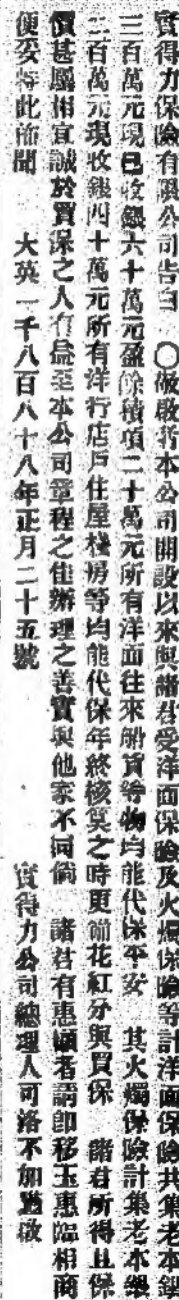 實得力保險有限公司告白 ○敬啟者本公司開設以來與諸君受洋面保險及火燭保險等計洋面保險共集老本銀
三百萬元現已收銀六十萬元盈餘積項二十萬元所有洋面往來船貨等物均能代保平安 其火燭保險計集老本銀
二百萬元現收銀四十萬元所有洋行店戶住屋棧房等均能代保年終核算之時更有花紅分與買保 諸君所得且保
價甚屬相宜誠於買保之人有益至本公司章程之佳辦理之善實與他家不同倘 諸君有惠顧者請即移玉惠臨相商
便妥特此佈聞 大英一千八百八十八年正月二十五號 實得力公司總理人可洛不加爹啟